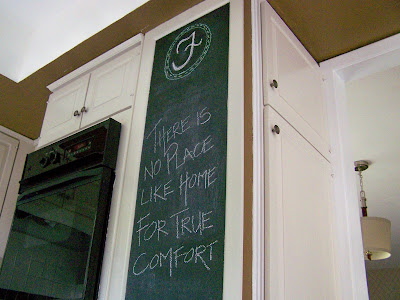 F
THERE IS
NO PLACE
LIKE HOME
FOR TRUE
COMFORT